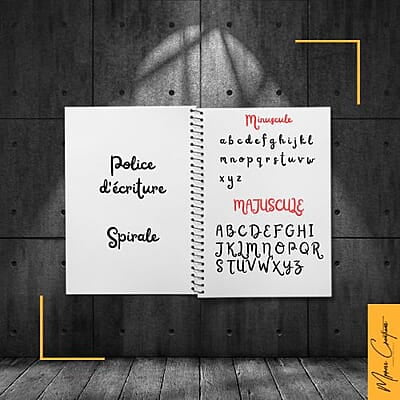 Police
d'écriture
Spirale
Minuscule
a b c d e f g h i j k l
m n o p q r s t u v w
x y z
MAJUSCULE
A B C D E F G H I
J K L M N O P Q R
S T U V W X Y Z